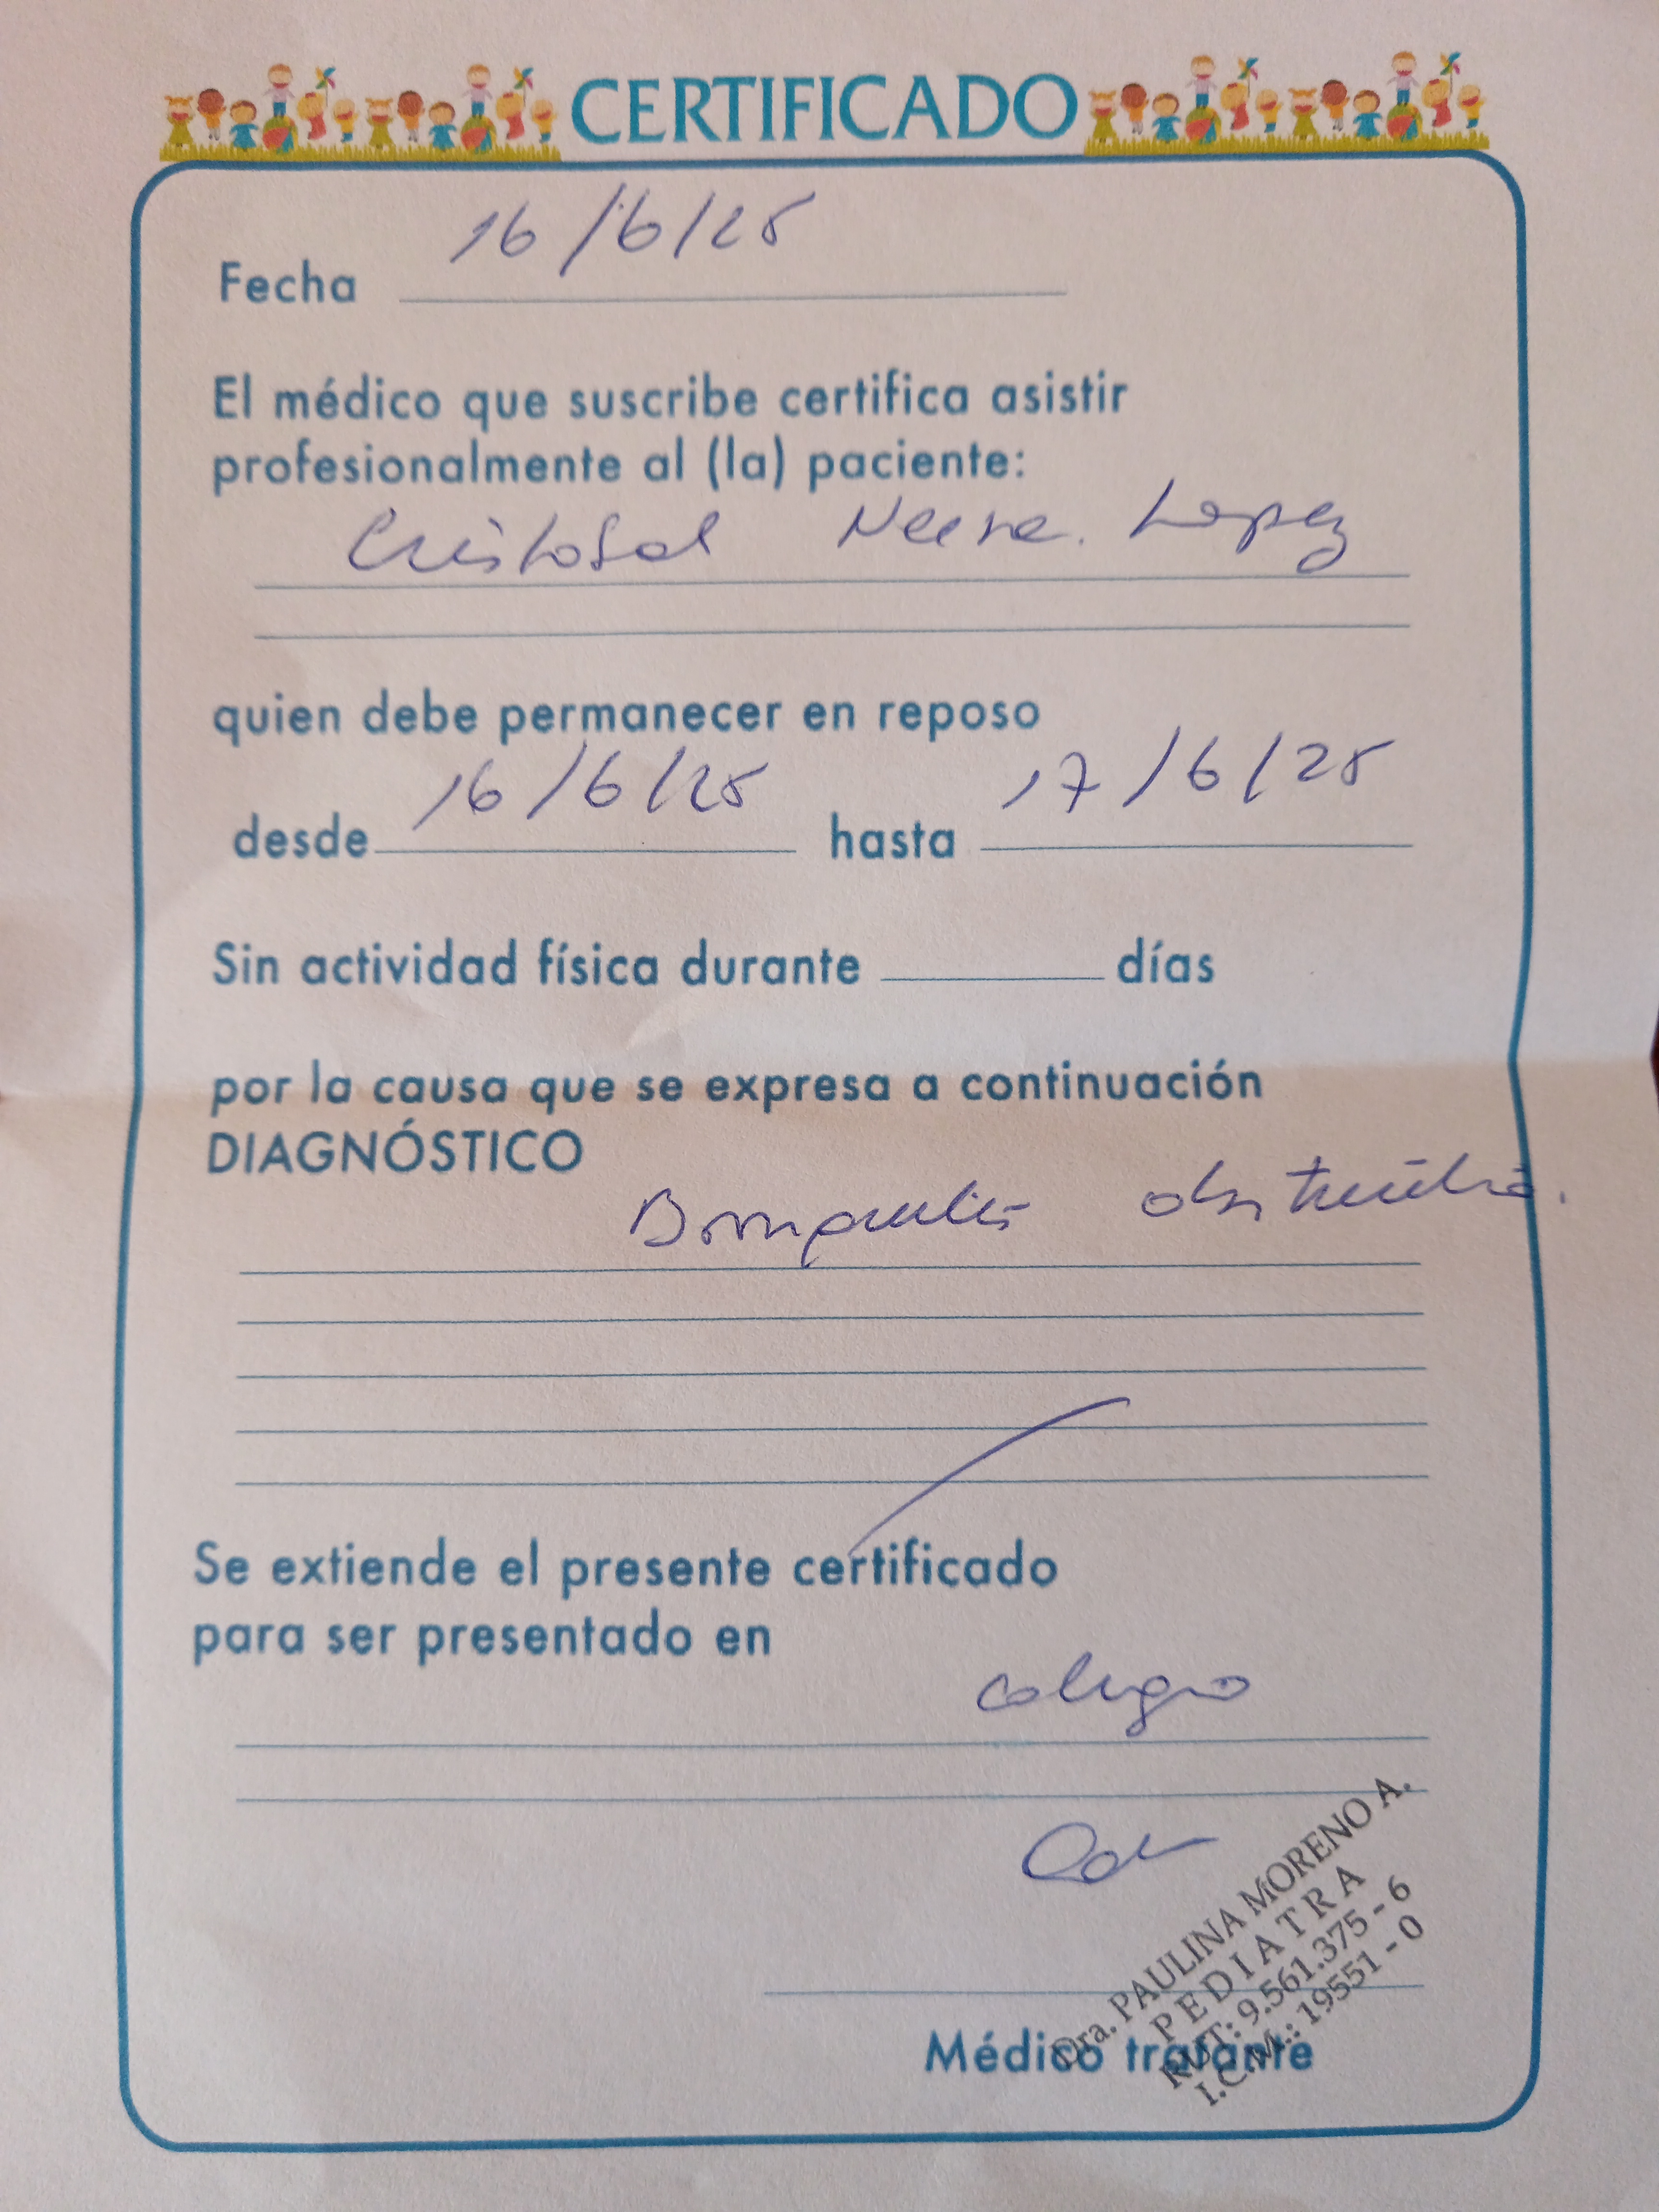 CERTIFICADO
Fecha 16/6/25
El médico que suscribe certifica asistir
profesionalmente al (la) paciente:
Cristobal Lopez
quien debe permanecer en reposo
desde 16/6/25 hasta 17/6/25
Sin actividad física durante días
por la causa que se expresa a continuación
DIAGNÓSTICO
obstructiva.
Se extiende el presente certificado
para ser presentado en
colegio
Dra. PAULINA MORENO A.
PEDIATRA
RUT: 9.561.375-6
I.C.M.: 19551-0
Médico tratante